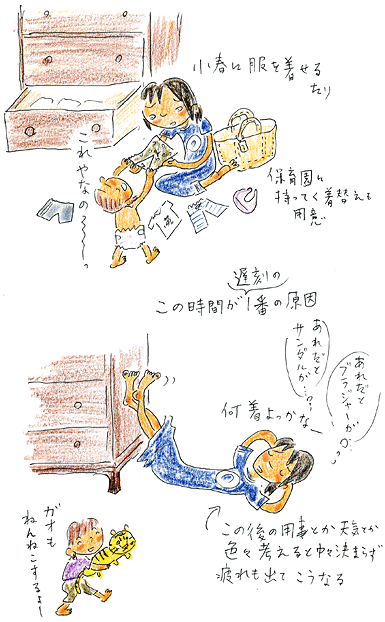 小春に服を着せる
たり
これやなの〜〜〜っ
保育園に
持ってく着替えも
用意
遅刻の
この時間が1番の原因
あれだと
サンダルが…
あれだと
ブラジャーがの…
何着よっかなー
ガオも
ねんねこするよー
この後の用事とか天気とか
色々考えると中々決まらず
疲れも出てこうなる